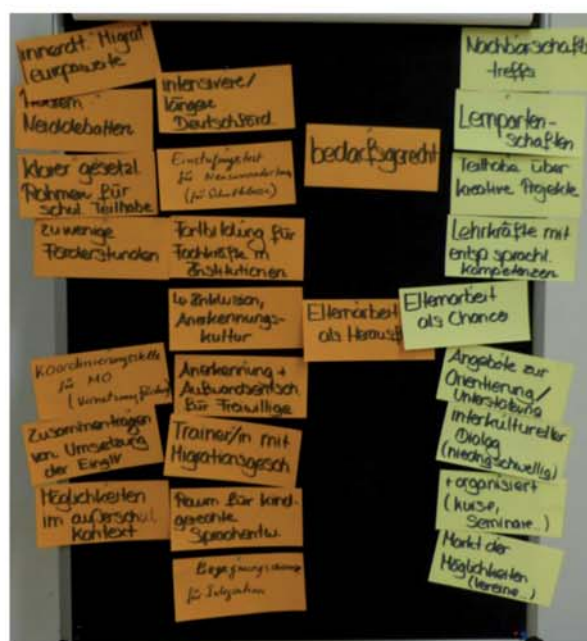 innerdt. "Migrat"
europaweite
Neiddebatten
klarer gesetzl.
Rahmen für
schul. Teilhabe
zu wenige
Förderstunden
Koordinierungsstelle
für MO
(Vernetzung/Förderung)
Zusammentragen
von Umsetzung
der Einglv
Möglichkeiten
im außerschul.
Kontext
intensivere/
längere
Deutschförd.
Einstufungstest
für Neuzuwanderung
(für Schulklassen)
Fortbildung für
Fachkräfte in
Institutionen
↳ Inklusion,
Anerkennungs-
kultur
Anerkennung +
Aufwandsentsch
für Freiwillige
Trainer/in mit
Migrationsgesch
Raum für kind-
gerechte
Sprachentw.
für Integration
bedarfsgerecht
Elternarbeit
als Herausf
Elternarbeit
als Chance
Nachbarschafts
treffs
Lernparten-
schaften
Teilhabe über
kreative Projekte
Lehrkräfte mit
entsp. sprachl.
Kompetenzen
Angebote zur
Orientierung/
Unterstützung
interkultureller
Dialog
(niedrigschwellig)
+ organisiert
(Kurse,
Seminare..)
Markt der
Möglichkeiten
(Vereine...)